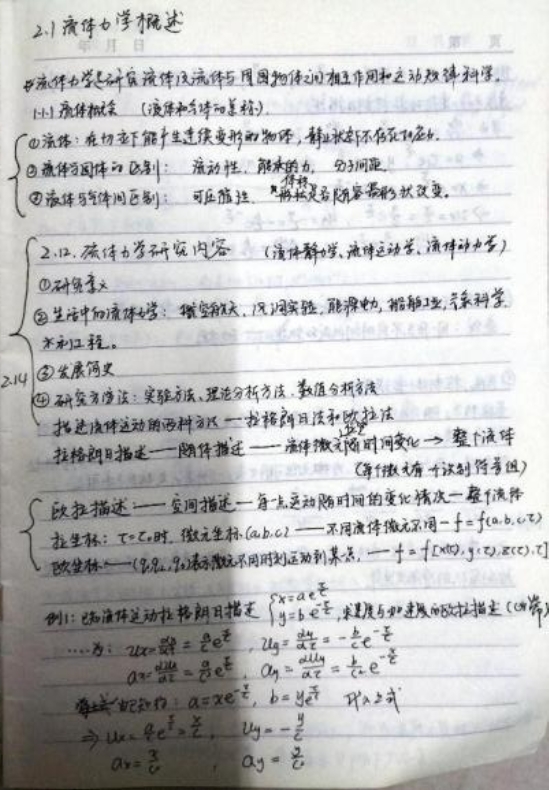 2.1 流体力学概述
流体力学是研究流体及流体与周围物体之间相互作用和运动规律科学.
1.1.1 流体概念 (液体和气体的总称).
①流体: 在切应力下能产生连续变形的物体, 静止状态下不存在切应力.
②流体与固体的区别: 流动性, 能承受的力, 分子间距.
③液体与气体间区别: 可压缩性, 体积 形状是否随容器形状改变.
2.1.2. 流体力学研究内容 (流体静力学, 流体运动学, 流体动力学)
①研究意义
②生活中的流体力学: 航空航天, 风洞实验, 能源电力, 船舶工业, 气象科学,
水利工程。
2.1.4
③发展简史
④研究方法: 实验方法, 理论分析方法, 数值分析方法
描述流体运动的两种方法 — 拉格朗日法和欧拉法
拉格朗日描述 — 随体描述 — 流体微元随时间变化 → 整个流体
(每个微元有一个识别符号组)
欧拉描述 — 空间描述 — 每一点运动随时间的变化情况 — 整个流体
拉坐标: τ=τ₀时, 微元坐标(a,b,c) — 不同流体微元不同 — f=f(a,b,c,τ)
欧坐标 — (q₁,q₂,q₃)表示微元不同时刻运动到某点, — f=f[x(τ),y(τ),z(τ),τ]
例1: 已知流体运动拉格朗日描述 { x=ae^{τ/c} y=be^{-τ/c}, 求速度与加速度的欧拉描述 (c为常)
为: ux=dx/dτ=a/c e^{τ/c}, uy=dy/dτ=-b/c e^{-τ/c}
ax=dux/dτ=a/c² e^{τ/c}, ay=duy/dτ=b/c² e^{-τ/c}
由已知得: a=xe^{-τ/c}, b=ye^{τ/c} 代入上式
⇒ ux=a/c e^{τ/c}=x/c, uy=-y/c
ax=x/c², ay=y/c²